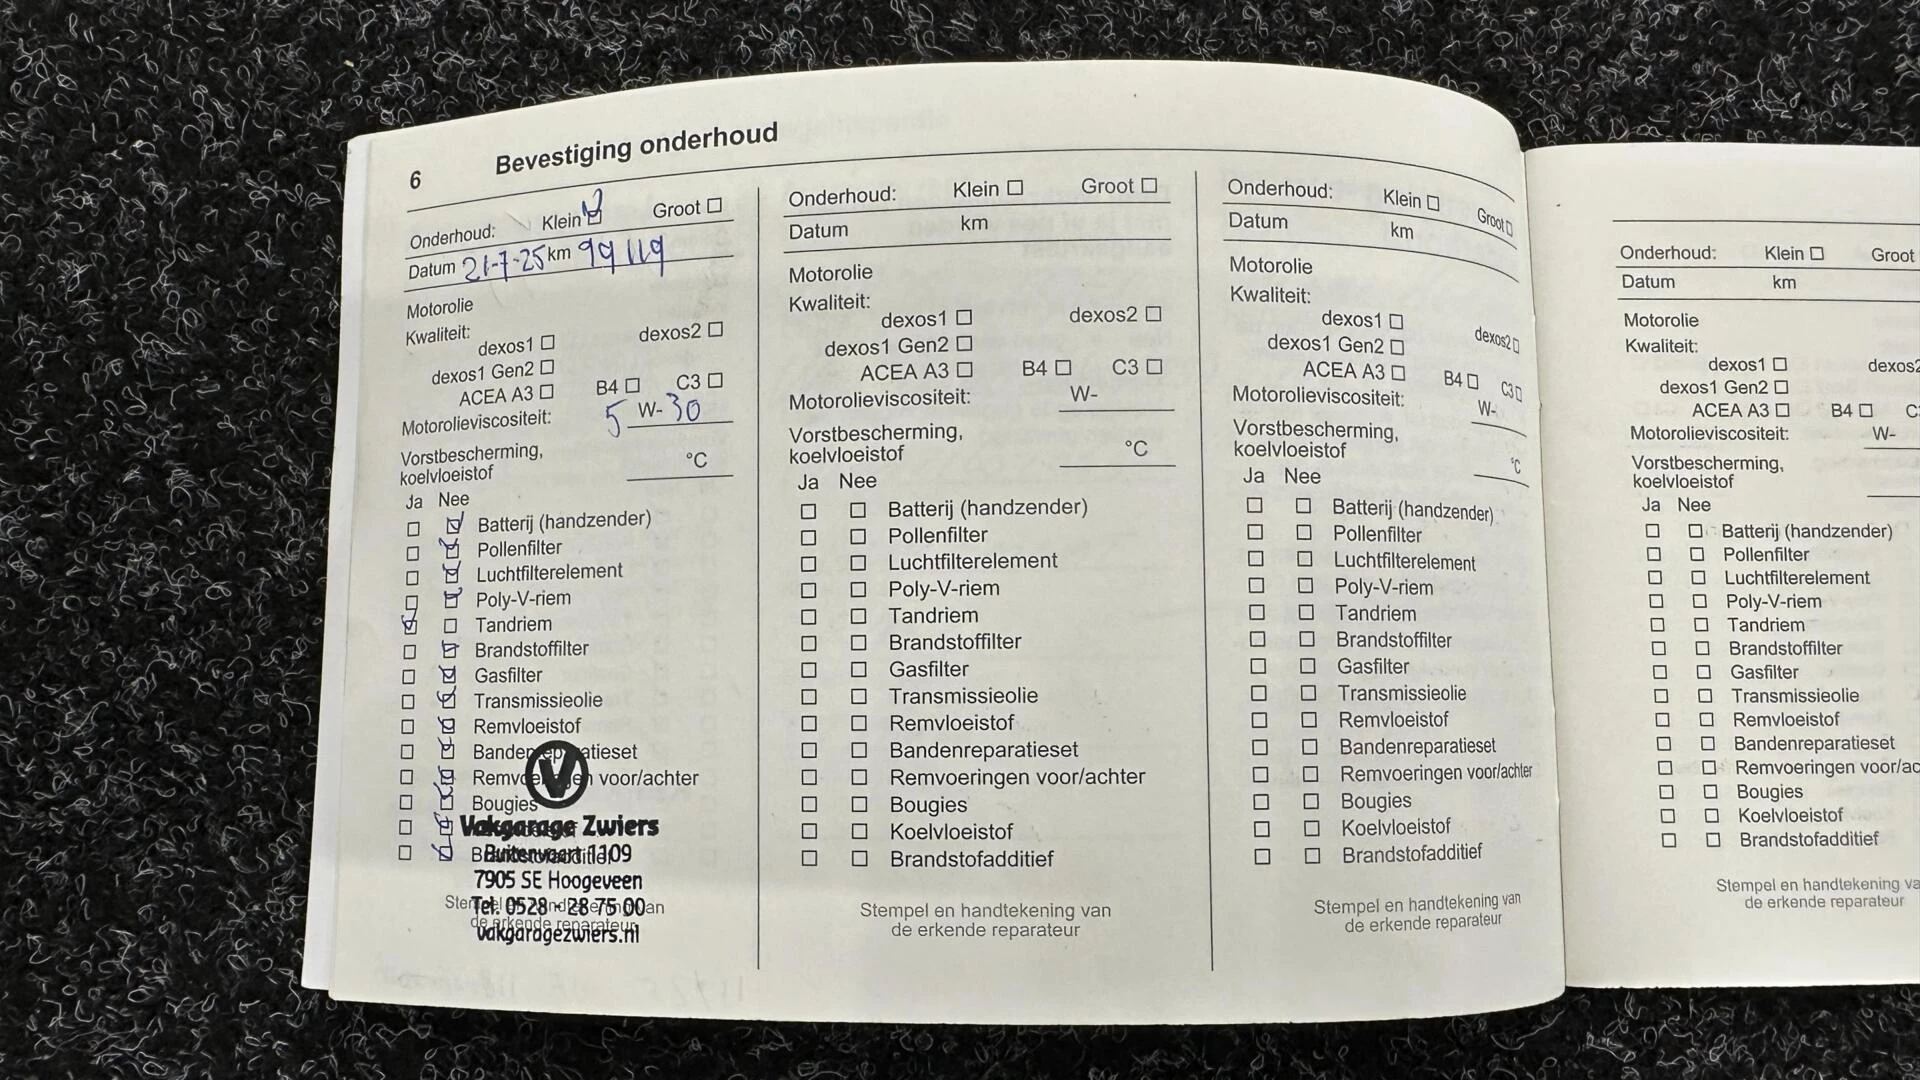 6 Bevestiging onderhoud
Onderhoud: Klein Groot
Datum 21-7-25 km 99119
Motorolie
Kwaliteit:
dexos1 dexos2
dexos1 Gen2
ACEA A3 B4 C3
Motorolieviscositeit: 5 W-30
Vorstbescherming,
koelvloeistof °C
Ja Nee
Batterij (handzender)
Pollenfilter
Luchtfilterelement
Poly-V-riem
Tandriem
Brandstoffilter
Gasfilter
Transmissieolie
Remvloeistof
Bandenreparatieset
Remvoeringen voor/achter
Bougies
V
Vakgarage Zwiers
Buitenvaart 1109
7905 SE Hoogeveen
Tel. 0528 - 28 75 00
vakgaragezwiers.nl
Stempel en handtekening van
de erkende reparateur
Onderhoud: Klein Groot
Datum km
Motorolie
Kwaliteit:
dexos1 dexos2
dexos1 Gen2
ACEA A3 B4 C3
Motorolieviscositeit: W-
Vorstbescherming,
koelvloeistof °C
Ja Nee
Batterij (handzender)
Pollenfilter
Luchtfilterelement
Poly-V-riem
Tandriem
Brandstoffilter
Gasfilter
Transmissieolie
Remvloeistof
Bandenreparatieset
Remvoeringen voor/achter
Bougies
Koelvloeistof
Brandstofadditief
Stempel en handtekening van
de erkende reparateur
Onderhoud: Klein Groot
Datum km
Motorolie
Kwaliteit:
dexos1 dexos2
dexos1 Gen2
ACEA A3 B4 C3
Motorolieviscositeit: W-
Vorstbescherming,
koelvloeistof °C
Ja Nee
Batterij (handzender)
Pollenfilter
Luchtfilterelement
Poly-V-riem
Tandriem
Brandstoffilter
Gasfilter
Transmissieolie
Remvloeistof
Bandenreparatieset
Remvoeringen voor/achter
Bougies
Koelvloeistof
Brandstofadditief
Stempel en handtekening van
de erkende reparateur
Onderhoud: Klein Groot
Datum km
Motorolie
Kwaliteit:
dexos1 dexos2
dexos1 Gen2
ACEA A3 B4
Motorolieviscositeit: W-
Vorstbescherming,
koelvloeistof
Ja Nee
Batterij (handzender)
Pollenfilter
Luchtfilterelement
Poly-V-riem
Tandriem
Brandstoffilter
Gasfilter
Transmissieolie
Remvloeistof
Bandenreparatieset
Remvoeringen voor/ac
Bougies
Koelvloeistof
Brandstofadditief
Stempel en handtekening va
de erkende reparateur